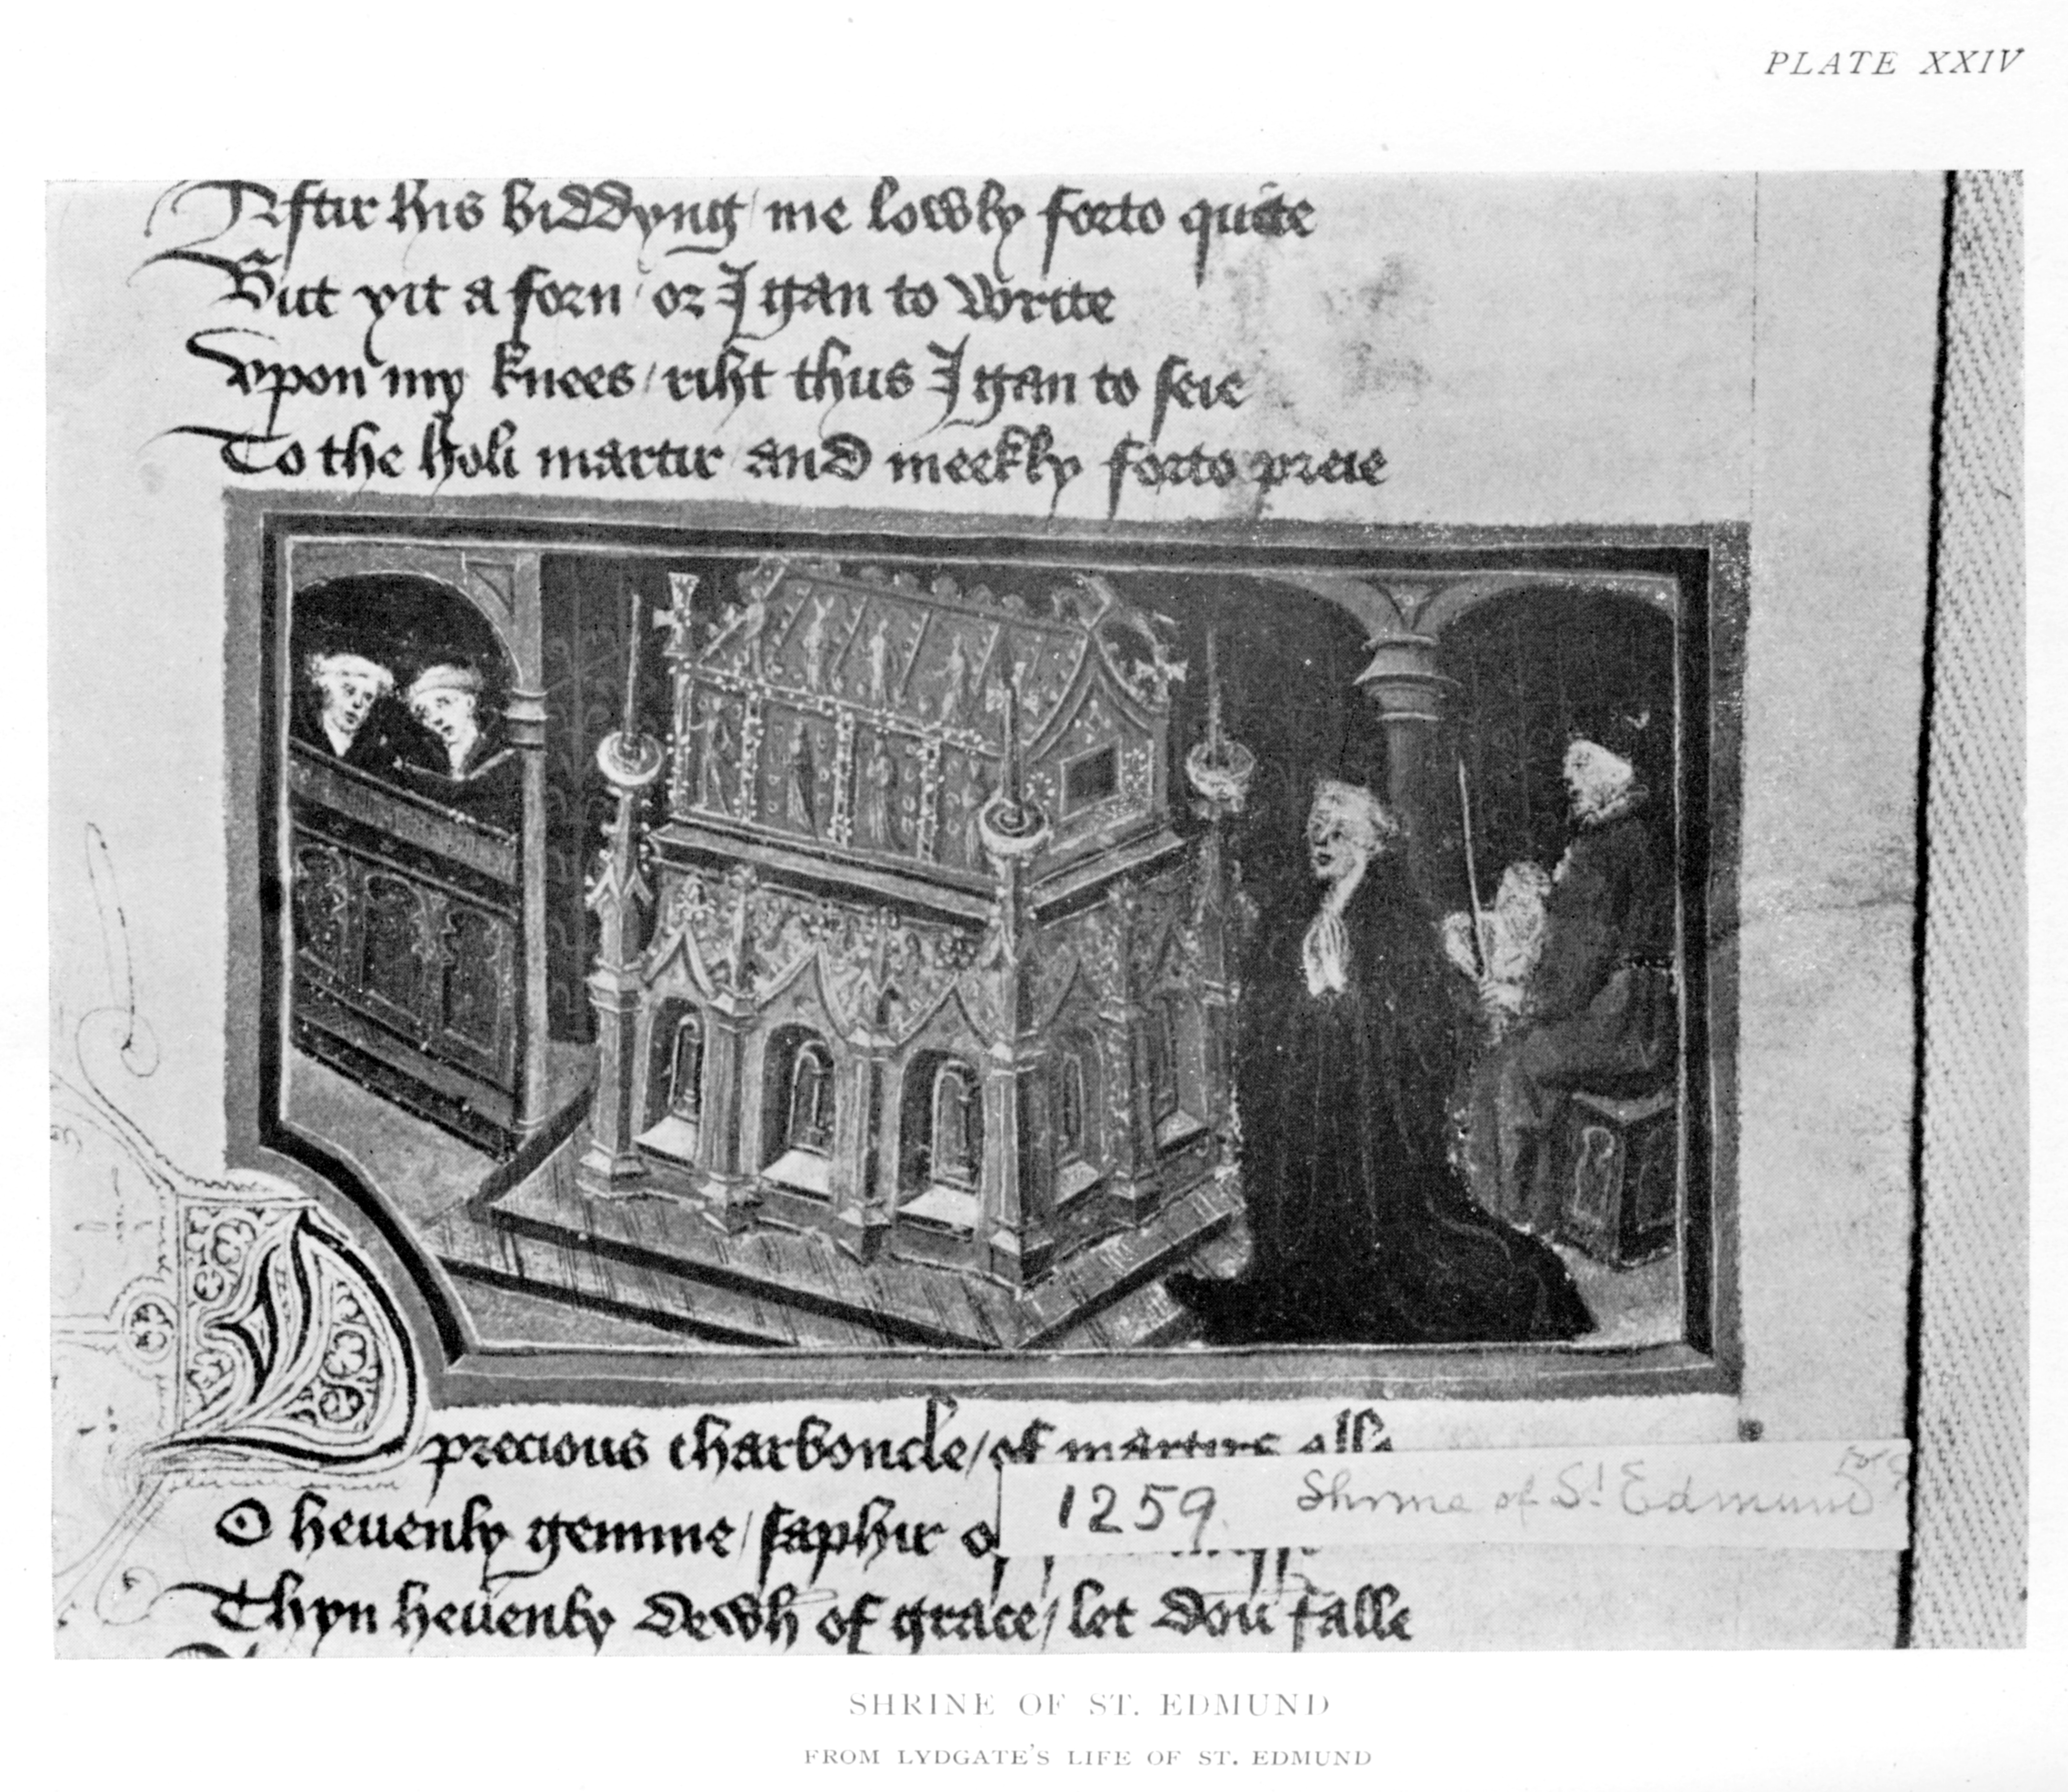 PLATE XXIV
Aftir his biddyng / me lowly forto quite
But yit a forn / or I gan to write
Vpon my knees / riht thus I gan to seie
To the holi martir and meekly forto preie
precious charboncle / of martirs alle
O hevenly gemme / saphir
Thyn hevenly dewh of grace / let doun falle
1259 Shrine of St Edmund
SHRINE OF ST. EDMUND
FROM LYDGATE'S LIFE OF ST. EDMUND